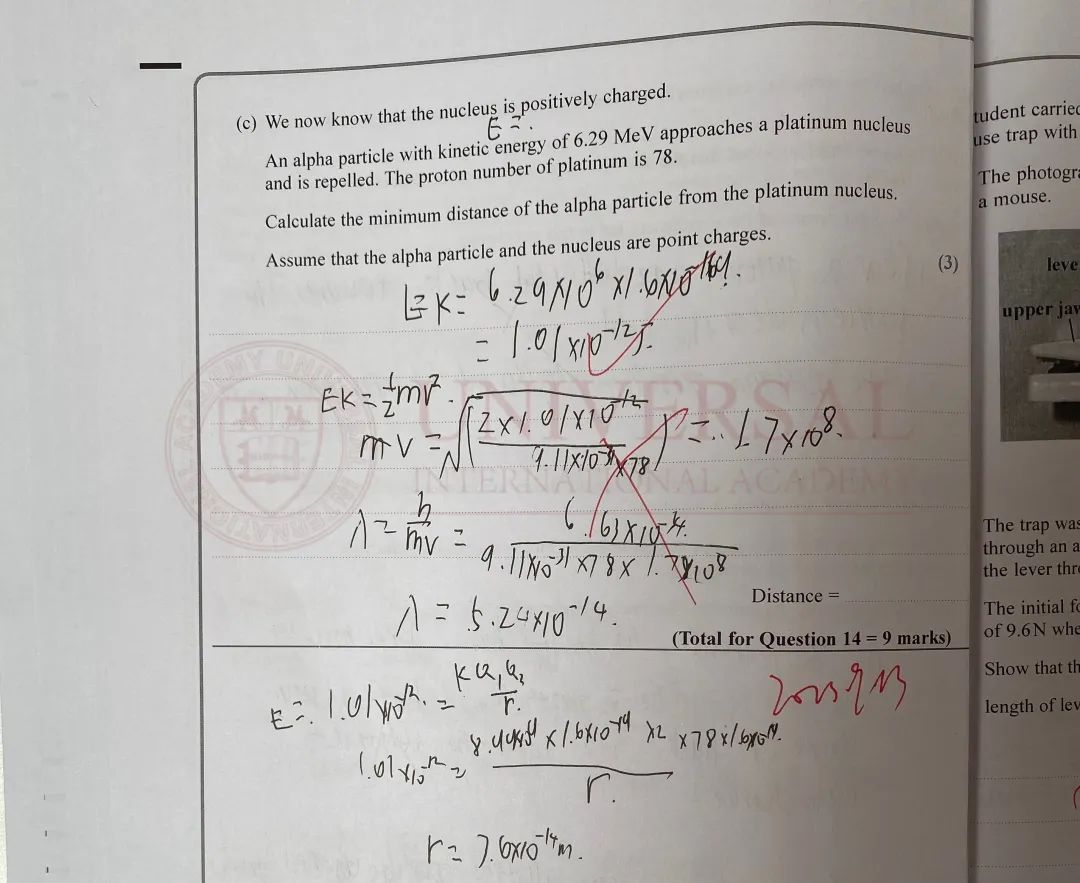 (c) We now know that the nucleus is positively charged.
E =.
An alpha particle with kinetic energy of 6.29 MeV approaches a platinum nucleus
and is repelled. The proton number of platinum is 78.
Calculate the minimum distance of the alpha particle from the platinum nucleus.
Assume that the alpha particle and the nucleus are point charges.
(3)
EK = 6.29×10⁶ ×1.6×10
= 1.01×10⁻¹²J.
EK = ½mv².
mv = √(2×1.01×10⁻¹² / 9.11×10⁻³¹×78) = 1.7×10⁸.
λ = h/mv = 6.63×10⁻³⁴ / 9.11×10⁻³¹ ×78× 1.7×10⁸
λ = 5.24×10⁻¹⁴.
Distance =
(Total for Question 14 = 9 marks)
E = 1.01×10⁻¹² = KQ₁Q₂/r.
1.01×10⁻¹² = ×1.6×10⁻¹⁹ ×2 ×78×1.6×10⁻¹⁹ / r.
r = 3.6×10⁻¹⁴m.
UNIVERSAL
INTERNATIONAL ACADEMY
tudent carried
use trap with
The photogra
a mouse.
leve
upper jaw
The trap was
through an a
the lever thr
The initial fo
of 9.6 N whe
Show that th
length of lev